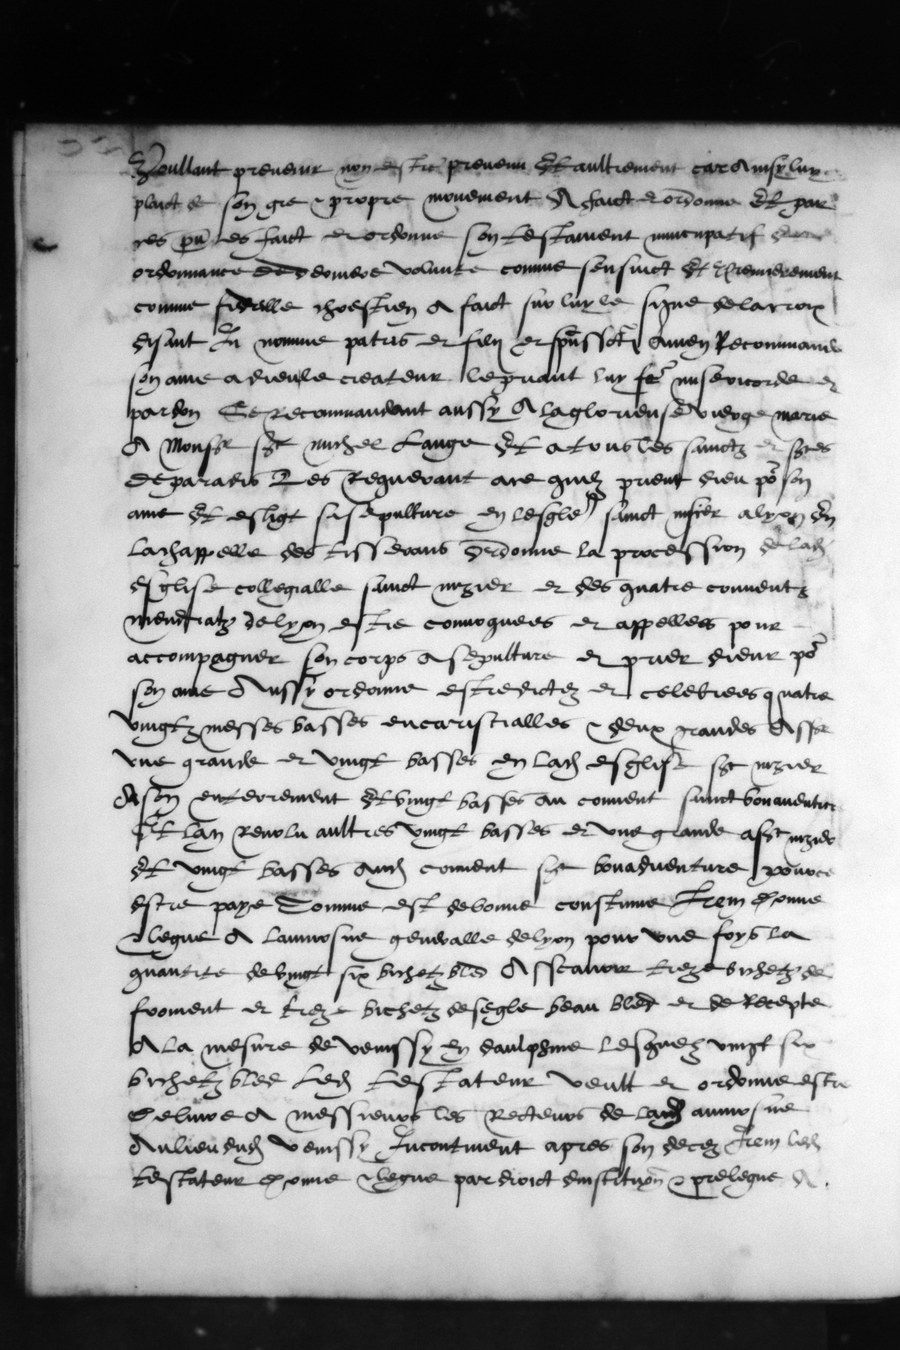 Voullant prevenir non estre prevenu Et aultrement car Ainsy luy
plaict de son gre & propre mouvement A faict et ordonne Et par
ces pntes faict et ordonne son testament nuncupatif
ordonnance de derniere volunte comme sensuict Et Premierement
comme fidelle chrestien A faict sur luy le signe de la croix
disant In nomine patris et filii et spus scti Amen Recommande
son ame a dieu le createur le priant luy fe misericorde et
pardon Se recommandant aussy A la glorieuse vierge marie
A Monsr sct michel Lange Et a tous les sainctz et sctes
de paradis Les Requerant a ce quilz prient dieu por son
ame Et eslict sa sepulture en lesglise sainct nisier a lyon En
la chappelle des tisserans Ordonne la procession de lad
esglise collegialle sainct nizier et des quatre couventz
mendiatz de lyon estre convoquees et appellees pour
accompagner son corps A sepulture et prier dieu por
son ame Aussy ordonne estre dictes et celebrees quatre
vingtz messes basses eucaristialles & deux grandes Assr
une grande et vingt basses en lad esglise sct nizier
A son enterrement Et vingt basses au couvent sainct bonaventure
Et lan Revolu aultres vingt basses et une grande a sct nizier
Et vingt basses aud couvent sct bonadventure pour ce
estre paye Comme est de bonne coustume Item donne
& legue A laulmosne generalle de lyon pour une foys la
quantite de vingt six bichetz bled Asscavoir treze bichetz de
froment et treze bichetz de segle beau bled et de Recepte
A la mesure de venissy en daulphine lesquelz vingt six
bichetz bled led testateur veult et ordonne estre
delivre A messieurs les Recteurs de lad aumosne
Au lieu dud venissy Incontinent apres son deces Item led
testateur donne & legue par droict dinstitution & prelegue A